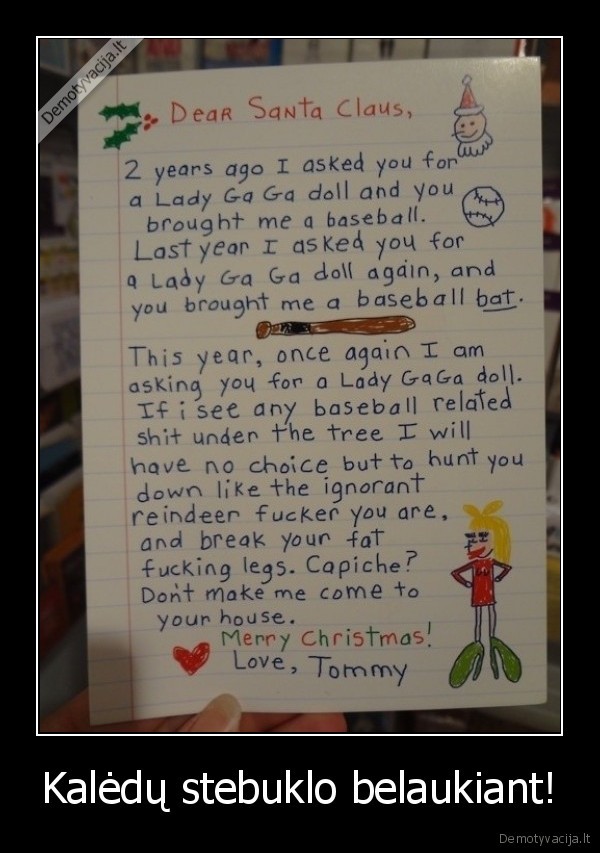 Demotyvacija.lt
Dear Santa Claus,
2 years ago I asked you for
a Lady Ga Ga doll and you
brought me a baseball.
Last year I asked you for
a Lady Ga Ga doll again, and
you brought me a baseball bat.
This year, once again I am
asking you for a Lady GaGa doll.
If i see any baseball related
shit under the tree I will
have no choice but to hunt you
down like the ignorant
reindeer fucker you are,
and break your fat
fucking legs. Capiche?
Don't make me come to
your house.
Merry Christmas!
Love, Tommy
Kalėdų stebuklo belaukiant!
Demotyvacija.lt